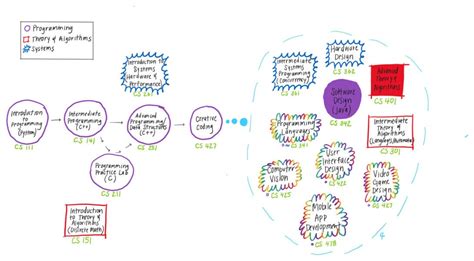 Programming
Theory & Algorithms
Systems
Introduction
to Systems
Hardware &
Performance
CS 261
Introduction
to
Programming
CS 111
Intermediate
Programming
(C++)
CS 141
Advanced
Programming/
Data Structures
(C++)
CS 251
Creative
Coding
CS 427
Programming
Practice Lab
(C)
CS 211
Introduction
to Theory &
Algorithms
(Discrete Math)
CS 151
Intermediate
Systems
Programming
(Concurrency)
CS 361
Hardware
Design
CS 362
Advanced
Theory &
Algorithms
CS 401
Software
Design
(Java)
CS 342
Programming
Languages
CS 341
Intermediate
Theory &
Algorithms
CS 301
User
Interface
Design
CS 422
Computer
Vision
CS 415
Video
Game
Design
Mobile
App
Development
CS 478